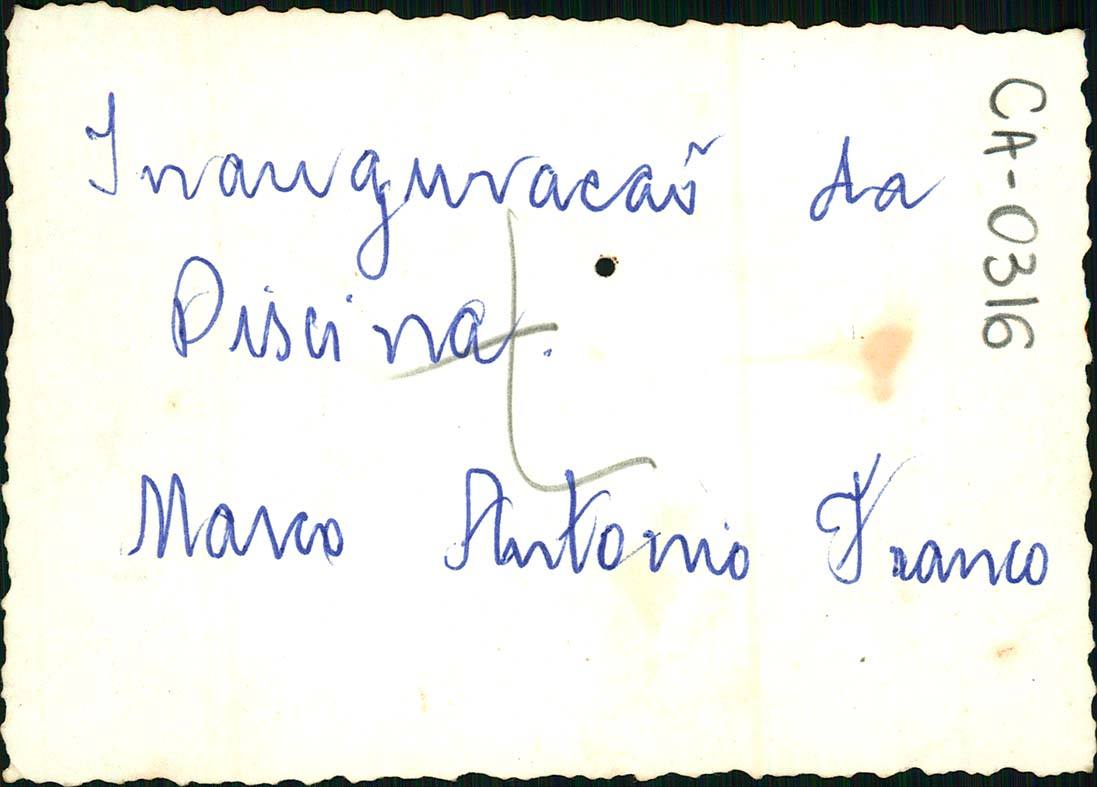 Inauguracaõ da
Piscina.
Marco Antonio Franco
CA-0316